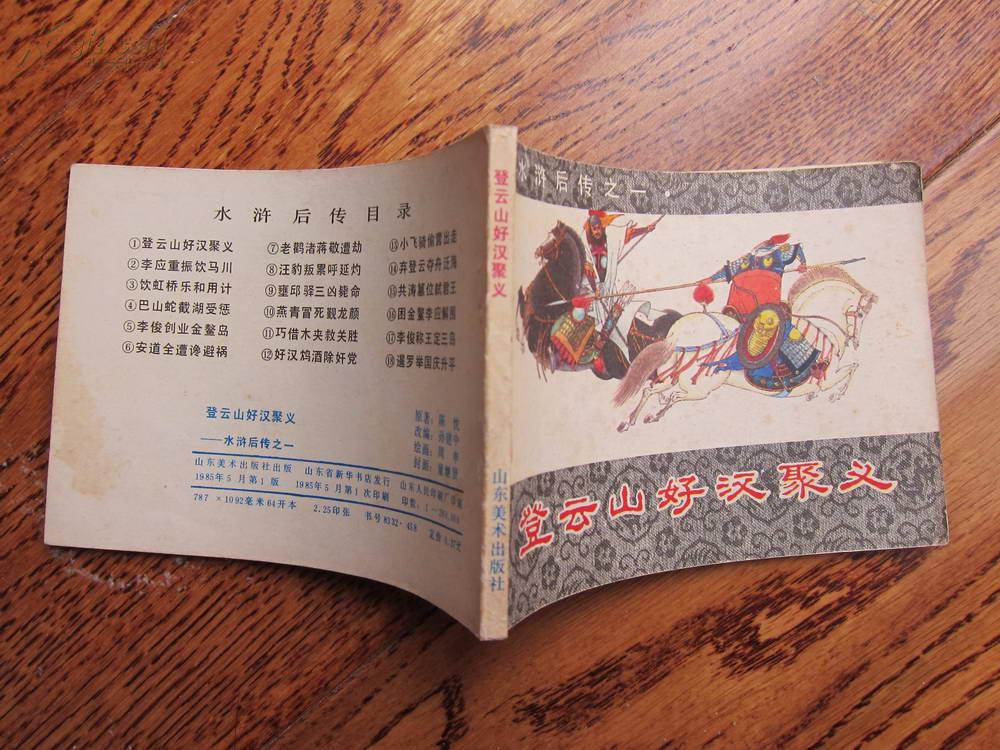 水浒后传目录
①登云山好汉聚义
②李应重振饮马川
③饮虹桥乐和用计
④巴山蛇截湖受惩
⑤李俊创业金鳌岛
⑥安道全遭谗避祸
⑦老鹳渚蒋敬遭劫
⑧汪豹叛累呼延灼
⑨壅邱驿三凶毙命
⑩燕青冒死觐龙颜
⑪巧借木夹救关胜
⑫好汉鸩酒除奸党
⑬小飞骑偷营出走
⑭弃登云夺舟泛海
⑮共涛篡位弑君王
⑯困金鳌李应解围
⑰李俊称王定三岛
⑱暹罗举国庆升平
登云山好汉聚义
——水浒后传之一
原著：陈忱
改编：孙建中
绘画：
封面：
山东美术出版社出版 山东省新华书店发行
1985年5月第1版 1985年5月第1次印刷
山东人民印刷厂印刷
印数：1—
787×1092毫米64开本 2.25印张 书号8332·458 定价0.37元
登云山好汉聚义
山东美术出版社
水浒后传之一
登云山好汉聚义